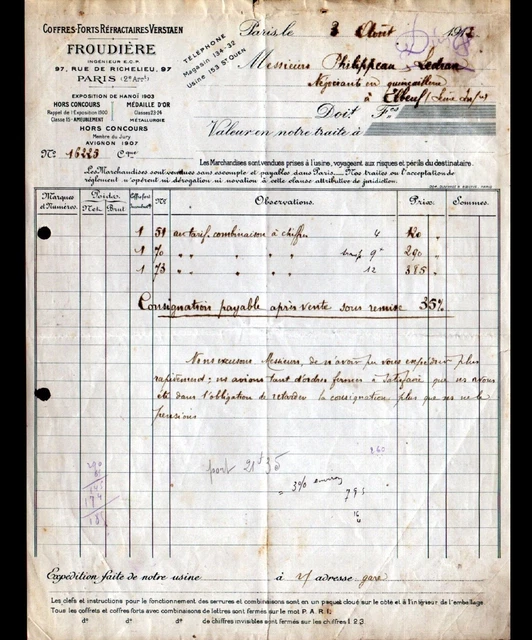 COFFRES-FORTS RÉFRACTAIRES VERSTAEN
FROUDIÈRE
INGÉNIEUR E.C.P.
97, RUE DE RICHELIEU, 97
PARIS (2e Arrt)
EXPOSITION DE HANOÏ 1903
HORS CONCOURS MÉDAILLE D'OR
Rappel de l'Exposition 1900 Classes 22-24
Classe 15-AMEUBLEMENT MÉTALLURGIE
HORS CONCOURS
Membre du Jury
AVIGNON 1907
TÉLÉPHONE
Magasin 134-32
Usine 153 St OUEN
Paris, le 3 Août 191
Messieurs Philippeau
Négociants en quincaillerie
à Elbeuf
Doit Frs
Valeur en notre traite à
No 15223 Cte
Les Marchandises sont vendues prises à l'usine, voyageant aux risques et périls du destinataire.
Les Marchandises sont vendues sans escompte et payables dans Paris. — Nos traites ou l'acceptation de
règlement n'opèrent ni dérogation ni novation à cette clause attributive de juridiction.
Marques et Numéros. Poids. Net. Brut. Nos Observations. Prix. Sommes.
1 51 au tarif, combinaison à chiffres 4 120
1 70 " " " " 9 290
1 73 " " " " 12 385
Consignation payable après vente sous remise 35%
Nous excusons Messieurs, de n'avoir pu vous expédier plus
rapidement; ns avions tant d'ordres fermes à satisfaire que ns avons
été dans l'obligation de retarder la consignation plus que ns ne le
pensions
260
port 21f 35
= 3% environ
795
290
145
174
Expédition faite de notre usine à v/ adresse gare
Les clefs et instructions pour le fonctionnement des serrures et combinaisons sont en un paquet cloué sur le côté et à l'intérieur de l'emballage.
Tous les coffrets et coffres forts avec combinaisons de lettres sont fermés sur le mot P.A.R.I.
do do de chiffres invisibles sont fermés sur les chiffres 1.2.3.